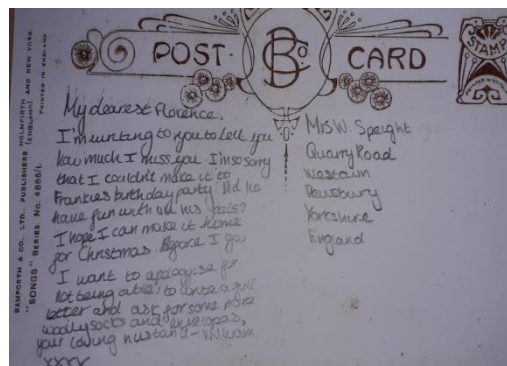 BAMFORTH & CO., LTD., PUBLISHERS HOLMFIRTH AND NEW YORK.
(ENGLAND)
PRINTED IN ENGLAND
"SONGS" SERIES. No. 4886/1.
POST CARD
B Co
STAMP
My dearest Florence.
I'm writing to you to tell you
how much I miss you. I'm so sorry
that I couldn't make it to
Frankies birthday party. Did he
have fun with all his pals?
I hope I can make it home
for Christmas. Before I go,
I want to apologise for
not being able to write a full
letter and ask for some more
woolly socks and envelopes,
your loving husband - William
xxxx
Mrs W. Speight
Quarry Road
Westown
Dewsbury
Yorkshire
England